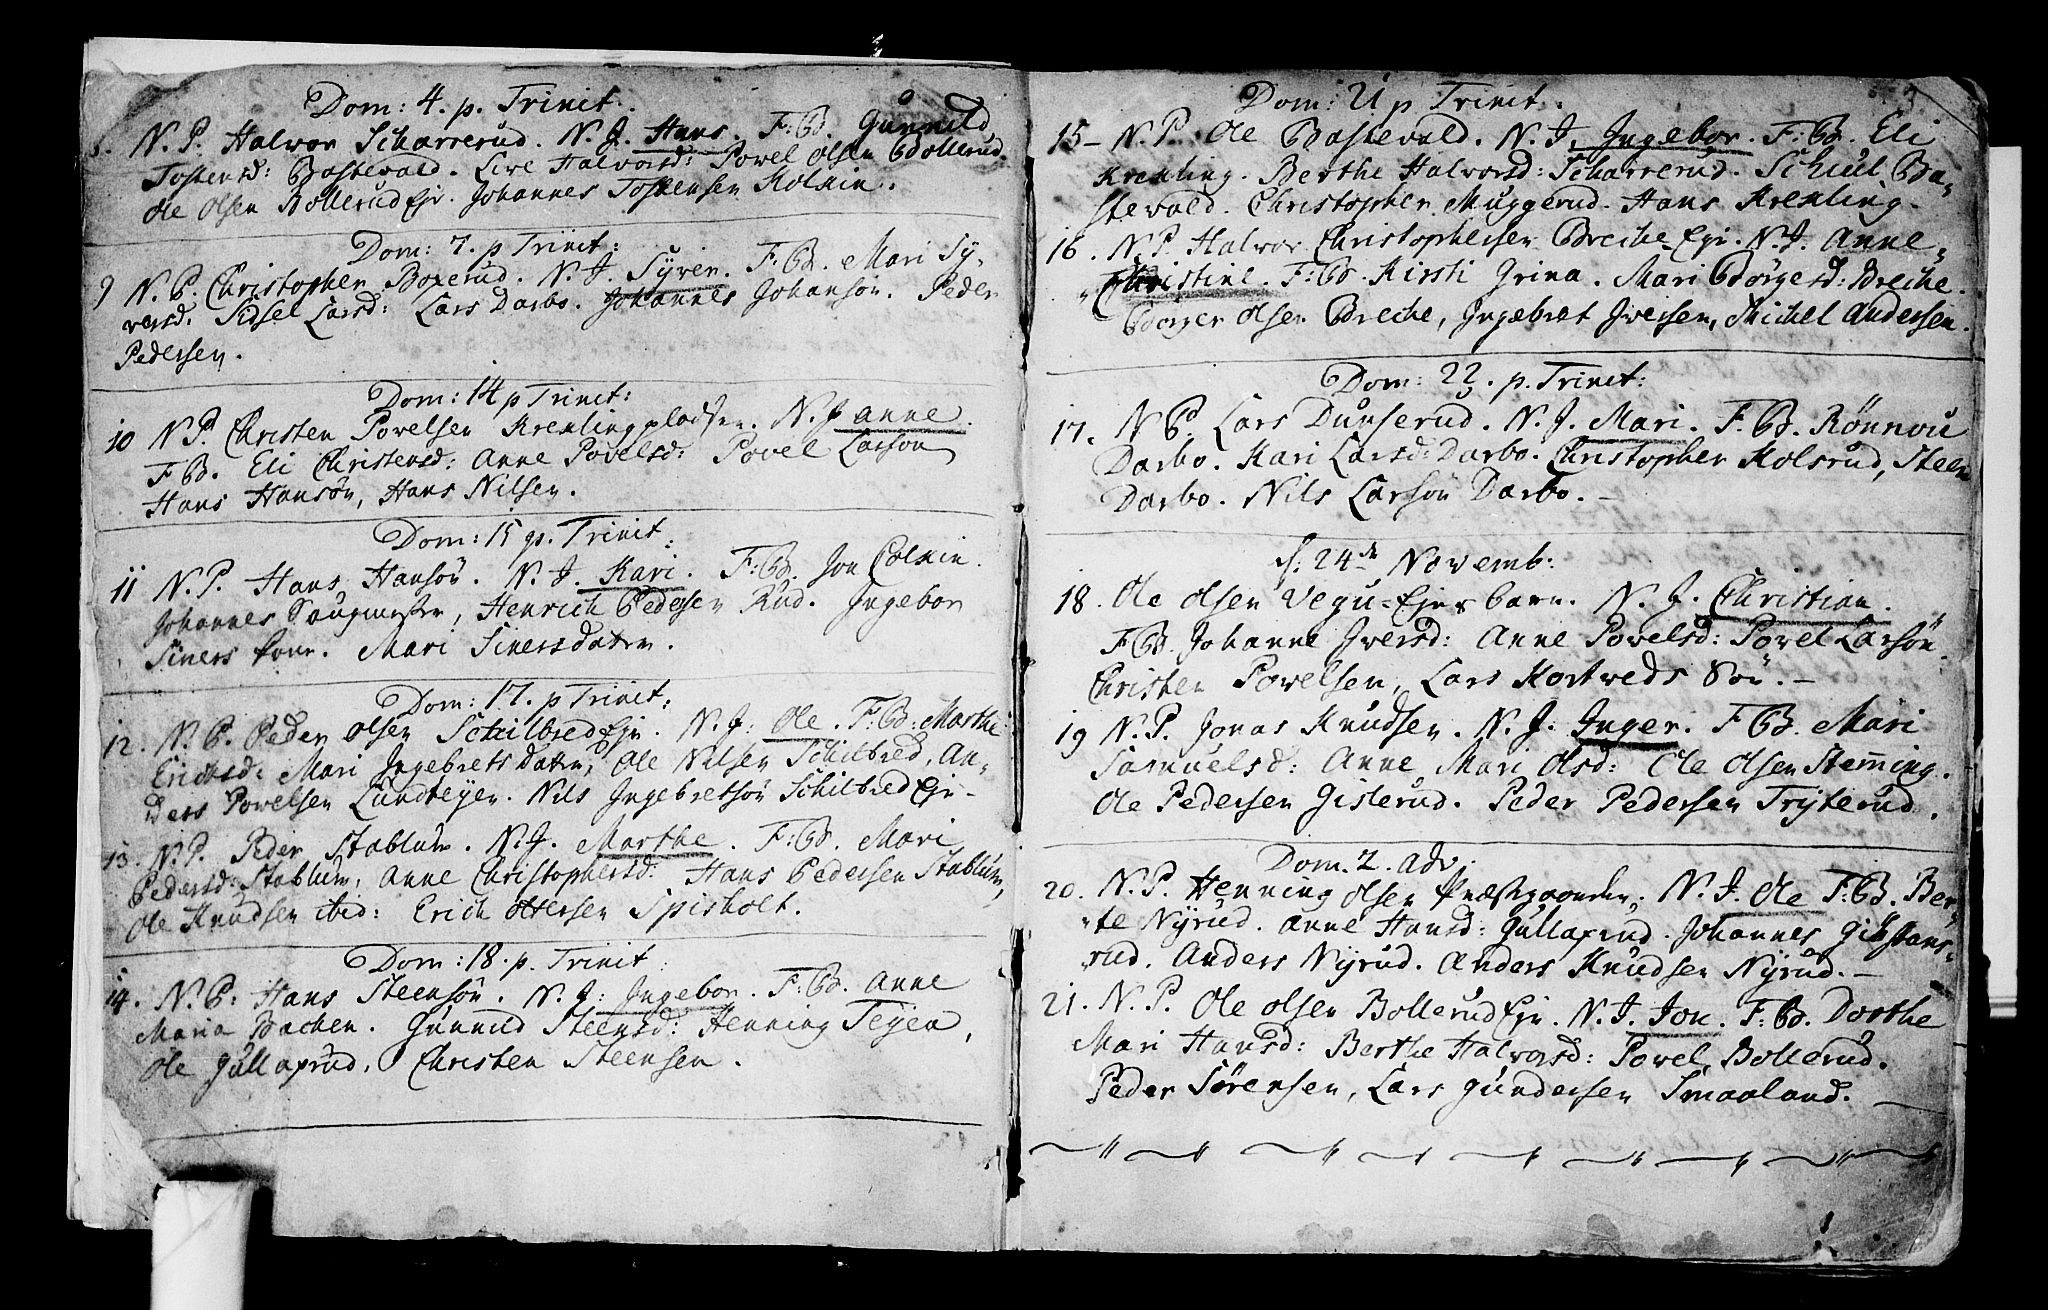 Dom: 4. p. Trinit.
8. N. P. Halvor Scharrerud. N. J. Hans. F: B. Gunnild
Tostensd: Bastevold. Live Halvorsd: Povel Olsen Bollerud.
Ole Olsen Bollerud Ejr. Johannes Tostensen Kolkin.
Dom: 7. p Trinit:
9 N. P. Christopher Boxerud. N. J. Syver. F: B. Mari Sy-
versd: Sidsel Larsd: Lars Darbo. Johannes Johansøn. Peder
Pedersen.
Dom: 14 p Trinit:
10 N P. Christen Povelsen Krexlingpladsen. N. J Anne.
F B. Eli Christensd: Anne Povelsd: Povel Larsøn
Hans Hansøn, Hans Nilsen.
Dom: 15 p. Trinit:
11 N. P. Hans Hansøn. N. J. Kari. F: B. Jon Colkin.
Johannes Saugmester, Henrich Pedersen Rud. Ingebor
Siners Kone. Mari Sinersdater.
Dom: 17. p Trinit:
12. N. P. Peder Olsen Schilbred Ejr. N. J: Ole. F: B: Marthe
Erichsd: Mari Ingebrets Dater, Ole Nilsen Schilbred, An-
ders Povelsen Lundtejen. Nils Ingebretsøn Schilbred Ejr-
13. N. P. Peder Stablum. N. J. Marthe. F: B. Mari
Pedersd: Stablum, Anne Christophersd: Hans Pedersen Stablum,
Ole Knudsen ibid: Erich Ottersen Spisholt.
Dom: 18. p. Trinit:
14. N. P: Hans Steensøn. N. J: Ingebor. F: B. Anne
Maria Bachen. Gunnild Steensd: Henning Tejen,
Ole Gullaxrud, Christen Steensen.
Dom: 21 p Trinit.
15- N. P. Ole Bastevold. N. J. Ingebor. F: B. Eli
Krexling. Berthe Halvorsd: Scharrerud. Schiul Ba-
stevold. Christopher Muggerud. Hans Krexling.
16. N. P. Halvor Christophersen Breche Ejr. N. J. Anne-
Christine. F: B. Kirsti Grina. Mari Børgesd: Breche.
Børger Olsen Breche, Ingebret Iversen, Michel Andersen.
Dom: 22. p. Trinit:
17. N P Lars Dunserud. N. J. Mari. F. B. Rønnou
Darbo. Kari Larsd: Darbo. Christopher Kolsrud, Steen
Darbo. Nils Larsøn Darbo. -
d. 24de Novemb:
18. Ole Olsen Vegu-Ejers barn. N. J. Christian.
F B. Johanne Iversd: Anne Povelsd: Povel Larsøn.
Christen Povelsen, Lars Kortveds Søn. -
19 N. P. Jonas Knudsen. N. J. Inger. F B. Mari
Samuelsd: Anne Mari Olsd: Ole Olsen Stemming.
Ole Pedersen Gislerud. Peder Pedersen Tryterud.
Dom. 2. Adv:
20. N. P. Henning Olsen Præstgaarden. N. J. Ole F: B. Ber-
te Nyrud. Anne Hansd: Gullaxrud. Johannes
rud. Anders Nyrud. Anders Knudsen Nyrud. -
21. N. P. Ole Olsen Bollerud Ejr. N. J. Jon. F: B. Dorthe
Mari Hansd: Berthe Halvorsd: Povel Bollerud.
Peder Sørensen, Lars Gundersen Smaaland. -